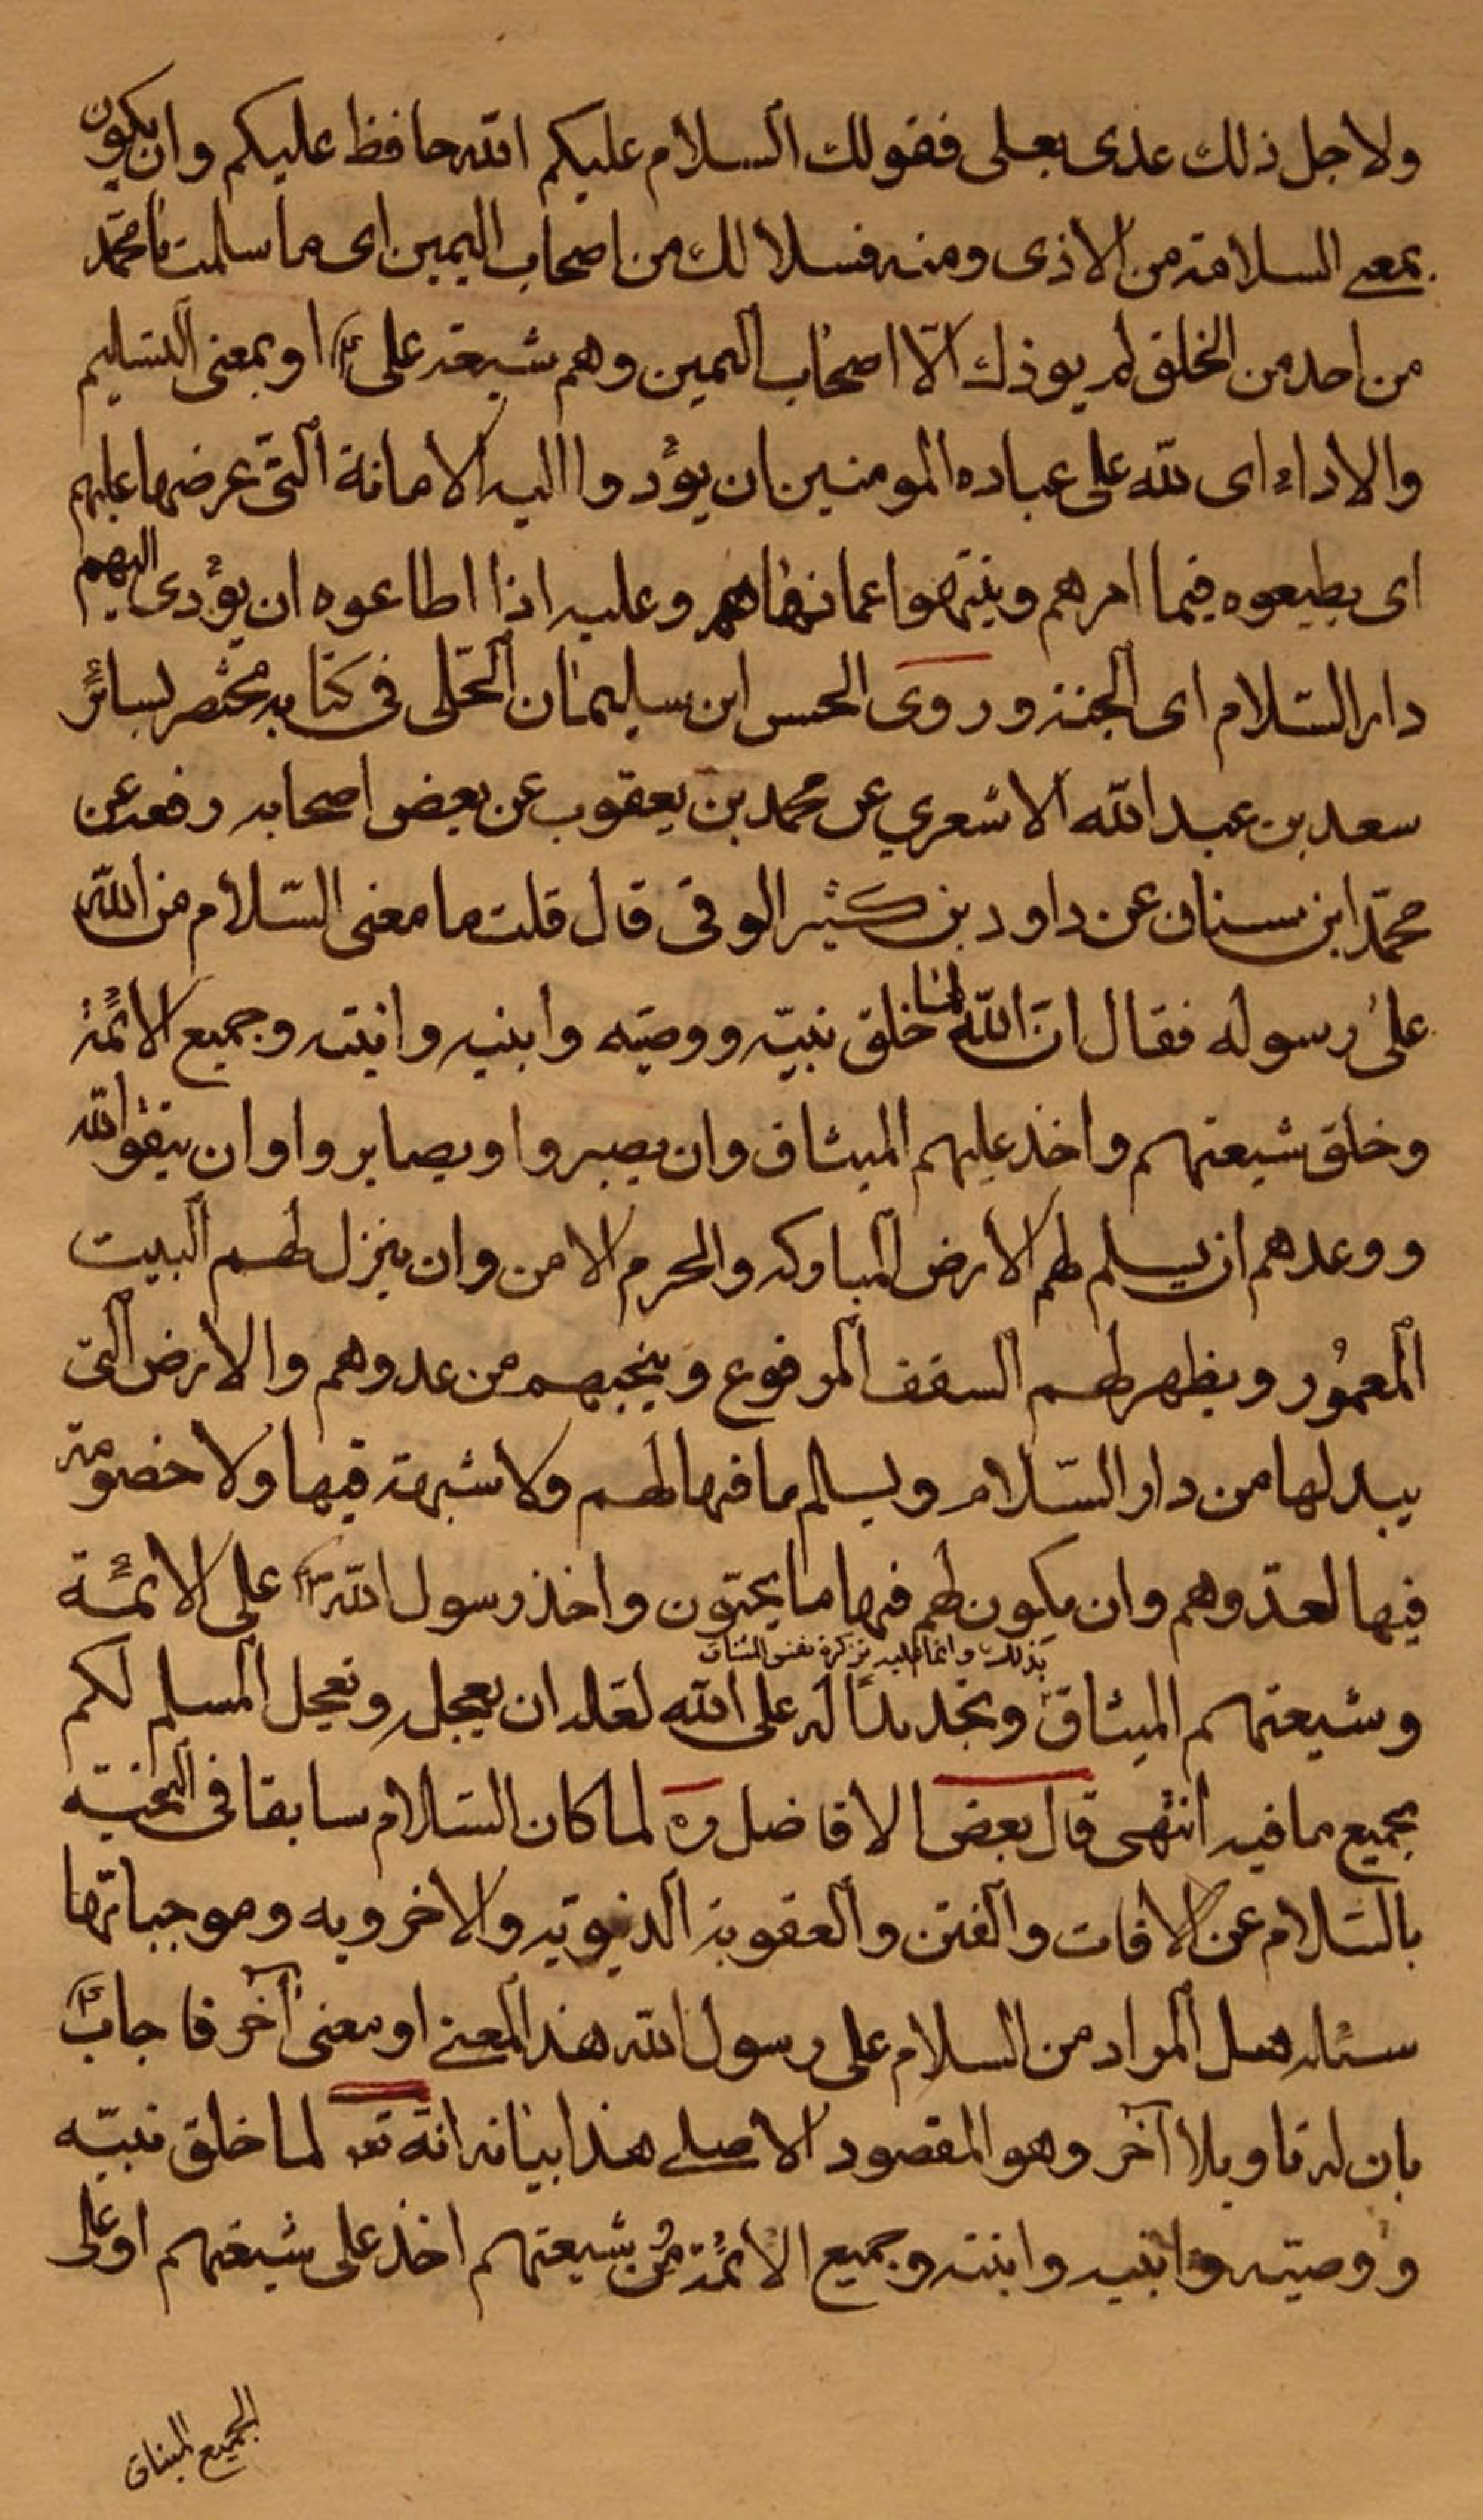 ولاجل ذلك عدى بعلى فقولك السلام عليكم الله حافظ عليكم وان يكون
بمعنى السلامة من الاذى ومنه فسلا لك من اصحاب اليمين اى ما سلمت يا محمد
من احد من الخلق لم يوذك الّا اصحاب اليمين وهم شيعة على ع او بمعنى التسليم
والاداء اى لله على عباده المومنين ان يؤدوا اليه الامانة التى عرضها عليهم
اى يطيعوه فيما امرهم وينتهوا عما نهاهم وعليه اذا اطاعوه ان يؤدى اليهم
دار السّلام اى الجنة وروى الحسن ابن سليمان الحلّى فى كتابه مختصر بسائر
سعد بن عبد الله الاشعري عن محمد بن يعقوب عن بعض اصحابه رفعه عن
محمّد ابن سنان عن داود بن كثير الوقى قال قلت ما معنى السّلام من الله
على رسوله فقال انّ الله لما خلق نبيّه ووصيّه وابنيه وابنته وجميع الائمّة
وخلق شيعتهم واخذ عليهم الميثاق وان يصبروا ويصابروا وان يتقوا الله
ووعدهم ان يسلم لهم الارض المباركه والحرم الامن وان ينزل لهم البيت
المعمُور ويظهر لهم السقف المرفوع وينجيهم من عدوهم والارض التى
يبدلها من دار السّلام ويسلم ما فيها لهم ولا شبهة فيها ولا خصومة
فيها لعدّوهم وان يكون لهم فيها ما يحبّون واخذ رسول الله ص على الائمّة
بذلك وانما عليه تزكرة نفس الميثاق
وشيعتهم الميثاق وتجديدًا له على الله لعلّه ان يعجله وتعجل المسلم لكم
بجميع ما فيه انتهى قال بعض الافاضل ره لما كان السّلام سابقا فى التحيّة
بالسّلام عن الافات والفتن والعقوبة الدنيويّه والاخرويه وموجباتها
سئله هل المراد من السلام على رسول الله هذا المعنى او معنى آخر فاجاب ع
بان له تاويلا آخر وهو المقصود الاصلى هذا بيانه انّه تع لما خلق نبيّه
ووصيّه وابنيه وابنته وجميع الائمّة من شيعتهم اخذ على شيعتهم او على
الجميع الميثاق